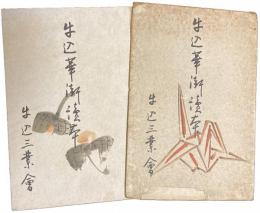 牛込華街読本
牛込三業會
牛込華街読本
牛込三業會